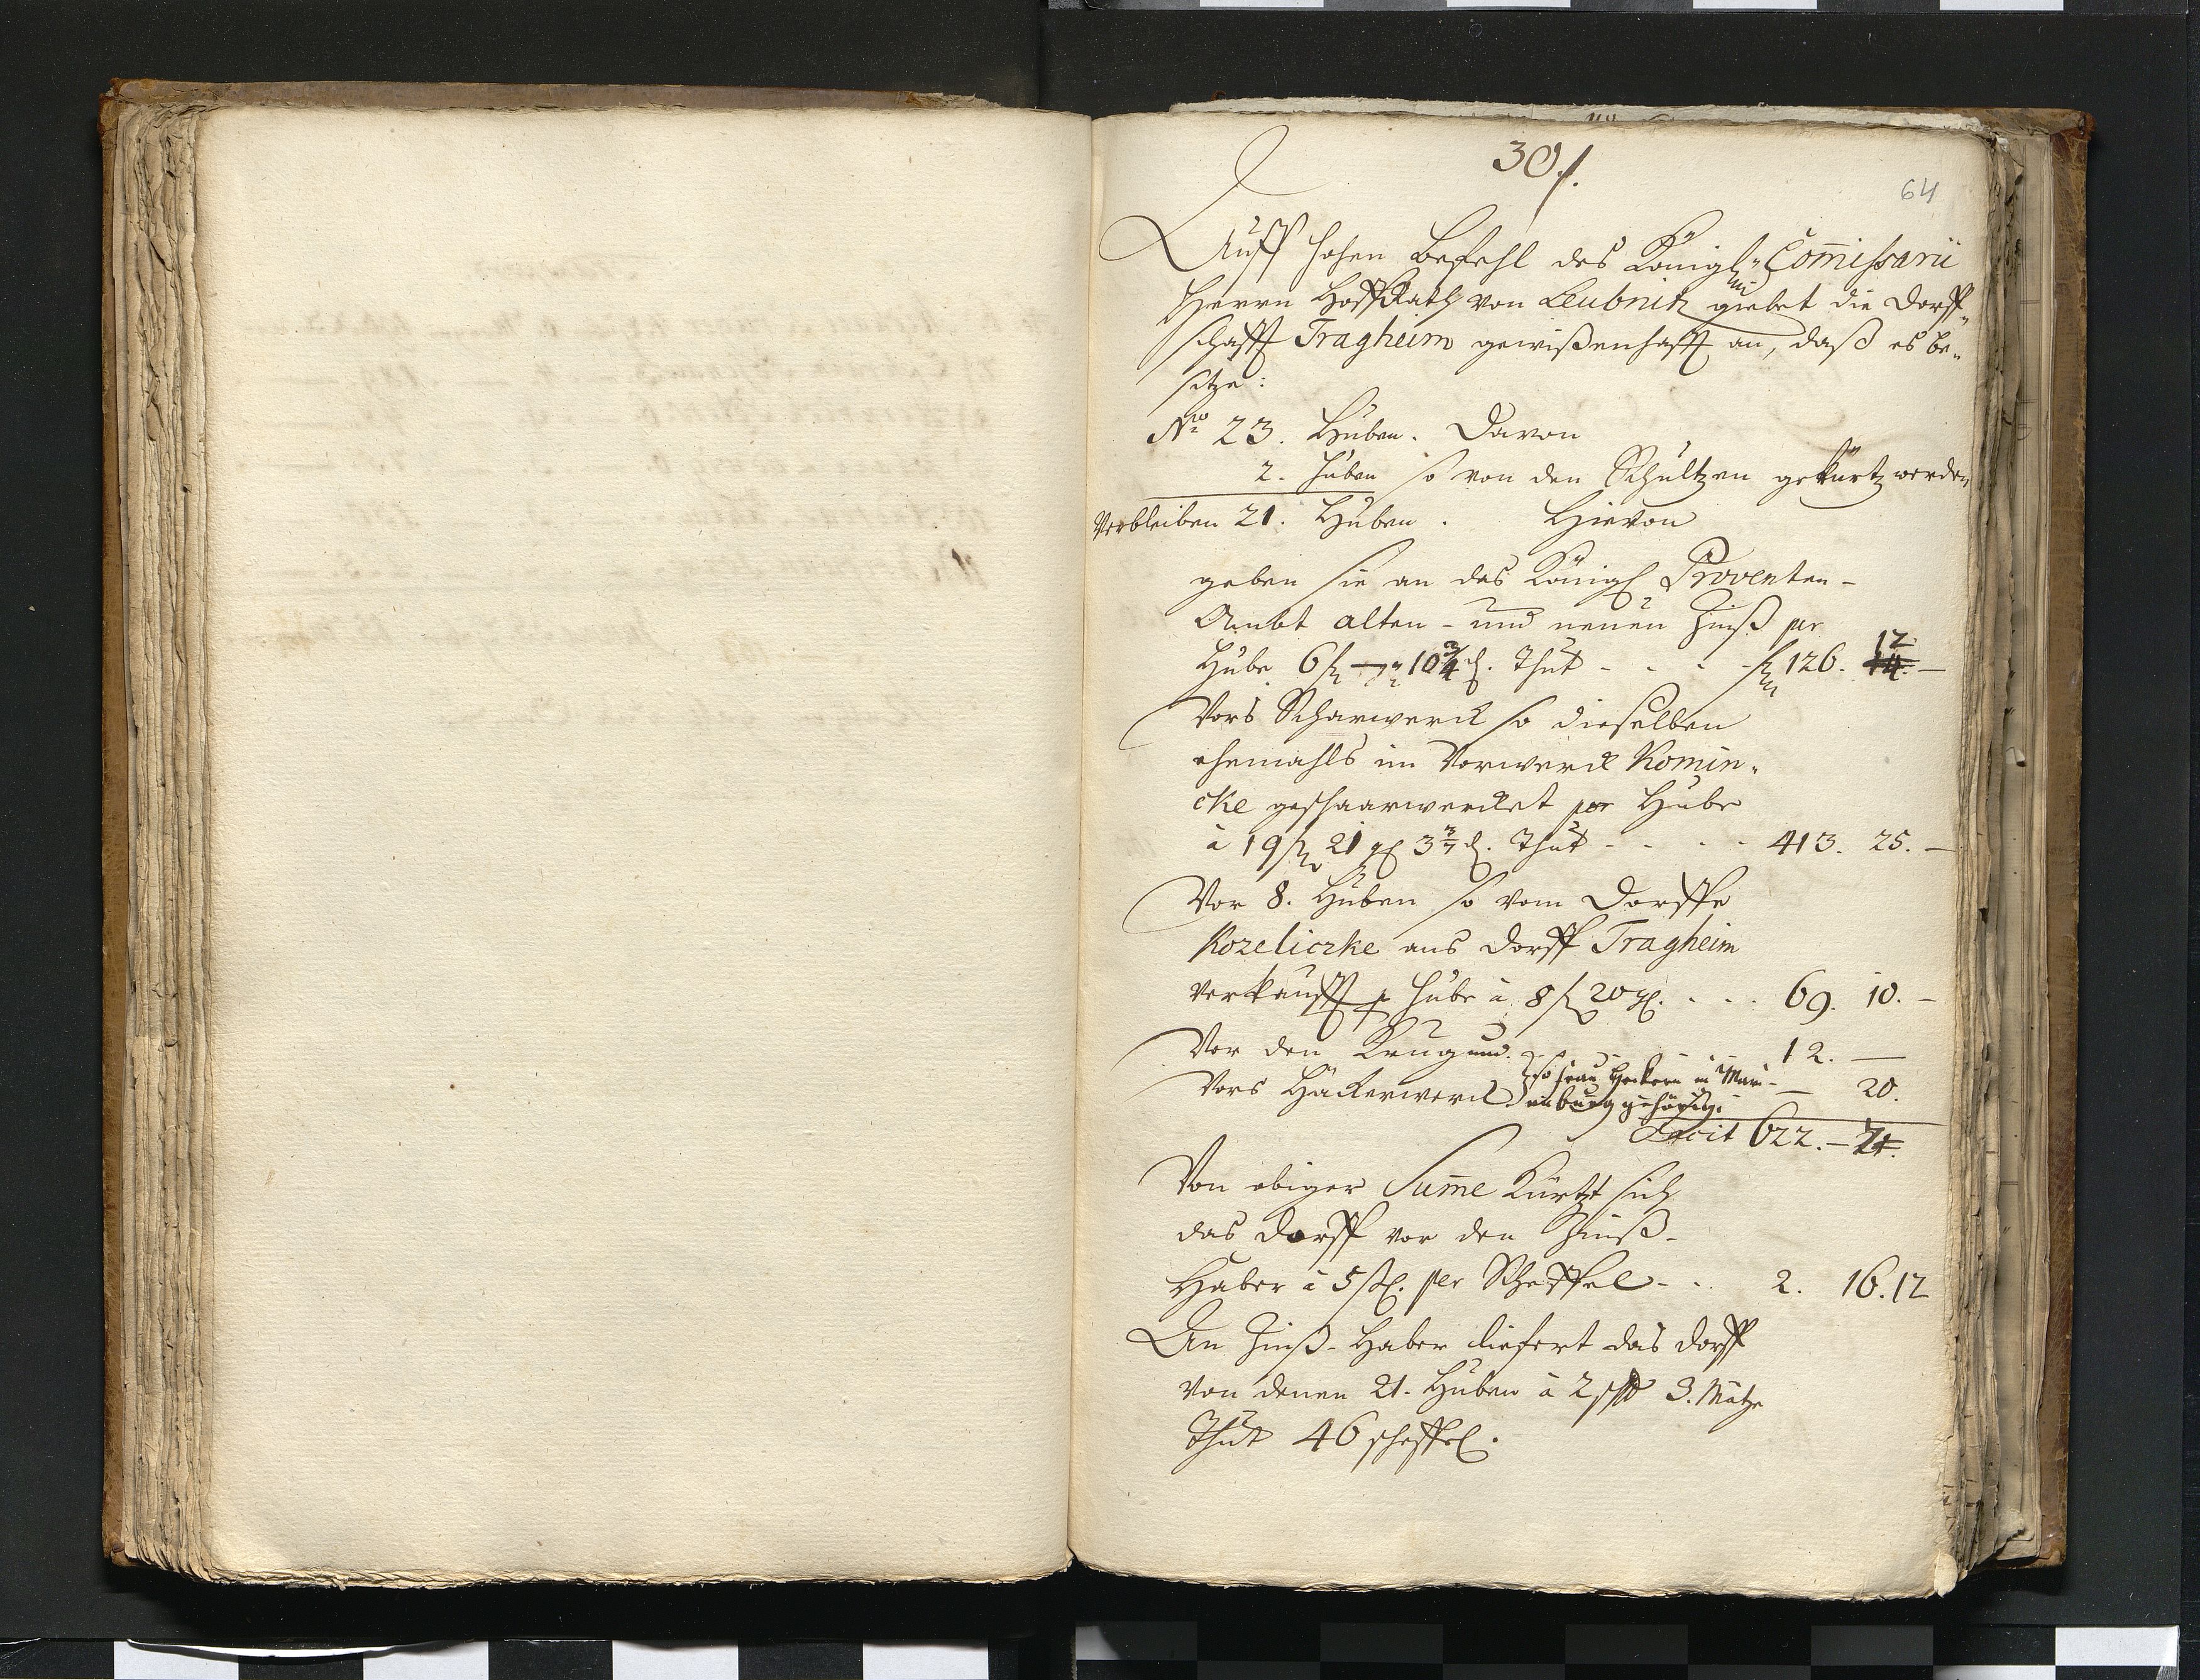 30.
64
Auff hohen Befehl des Königl. Commissarii
Herrn Hoffrath von Leubnitz giebet die Dorff-
schafft Tragheim gewißenhafft an, daß es be-
sitze:
No 23. Huben. Davon
2. Huben so von den Schultzen gekürtz werden
Verbleiben 21. Huben. Hievon
geben sie an des Königl Proventen-
Ambt alten- und neuen Zinß per
Hube 6 f – 10 3/4 d. Thut - - - f 126. 12 –
Vors Scharwerck so dieselben
ehemahls im Vorwerck Komin-
cke geschaarwercket per Hube
à 19 f 21 gl 3 3/7 d. Thut - - - - 413. 25. –
Vor 8. Huben so vom Dorffe
Kozeliczke ans Dorff Tragheim
verkaufft p Hube à 8 f 20 gl. - - - 69. 10. –
Vor den Krug und - - - 12. –
Vors Häckerwerck so Frau in Mari- – 20.
enburg gehörig.
Facit 622. – 7
Von obiger Summe Kürtzt sich
das Dorff vor den Zinß-
Haber à 5 ßl. per Scheffel - - 2. 16. 12
An Zinß-Haber liefert das Dorff
von denen 21. Huben à 2 schfl 3. Mätze
Thut 46 scheffel.